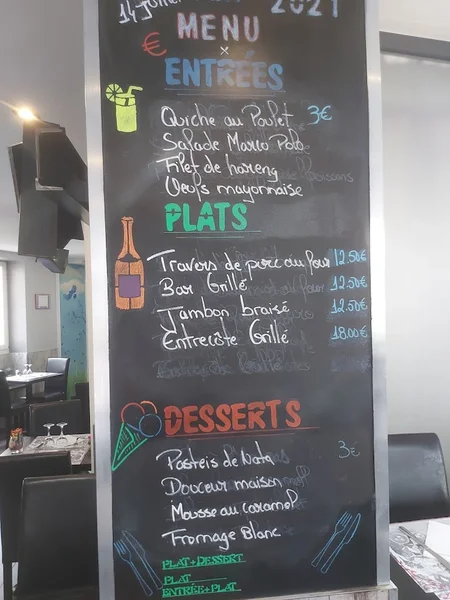 14 Juillet 2021
MENU
€
ENTRÉES
Quiche au Poulet 3€
Salade Marco Polo
Filet de hareng
Oeufs mayonnaise
PLATS
Travers de porc au four 12.50€
Bar Grillé 12.50€
Jambon braisé 12.50€
Entrecôte Grillé 18.00€
DESSERTS
Pasteis de Nata 3€
Douceur maison
Mousse au caramel
Fromage Blanc
PLAT+DESSERT
PLAT
ENTRÉE+PLAT